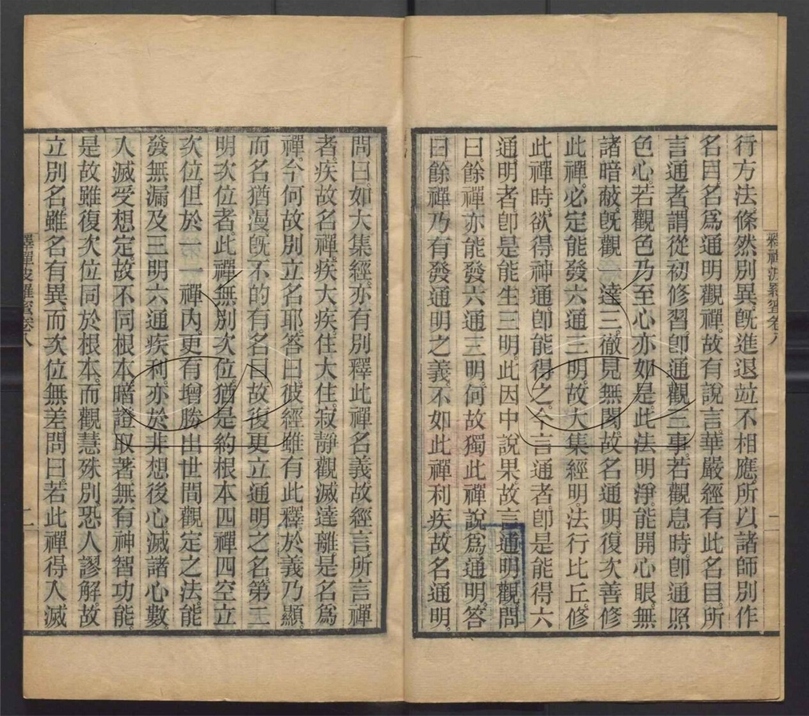 行方法條然別異旣進退竝不相應所以諸師別作
名目名爲通明觀禪故有說言華嚴經有此名目所
言通者謂從初修習卽通觀三事若觀息時卽通照
色心若觀色乃至心亦如是此法明淨能開心眼無
諸暗蔽旣觀一達三徹見無閡故名通明復次善修
此禪必定能發六通三明故大集經明法行比丘修
此禪時欲得神通卽能得之今言通者卽是能得六
通明者卽是能生三明此因中說果故言通明觀問
曰餘禪亦能發六通三明何故獨此禪說爲通明答
曰餘禪乃有發通明之義不如此禪利疾故名通明
問曰如大集經亦有別釋此禪名義故經言所言禪
者疾故名禪疾大疾住大住寂靜觀滅達離是名爲
禪今何故別立名耶答曰彼經雖有此釋於義乃顯
而名猶漫旣不的有名目故復更立通明之名第二
明次位者此禪無別次位猶是約根本四禪四空立
次位但於一一禪內更有增勝出世間觀定之法能
發無漏及三明六通疾利亦於非想後心滅諸心數
入滅受想定故不同根本暗證取著無有神智功能
是故雖復次位同於根本而觀慧殊別恐人謬解故
立別名雖名有異而次位無差問曰若此禪得入滅
釋禪波羅蜜卷八
二